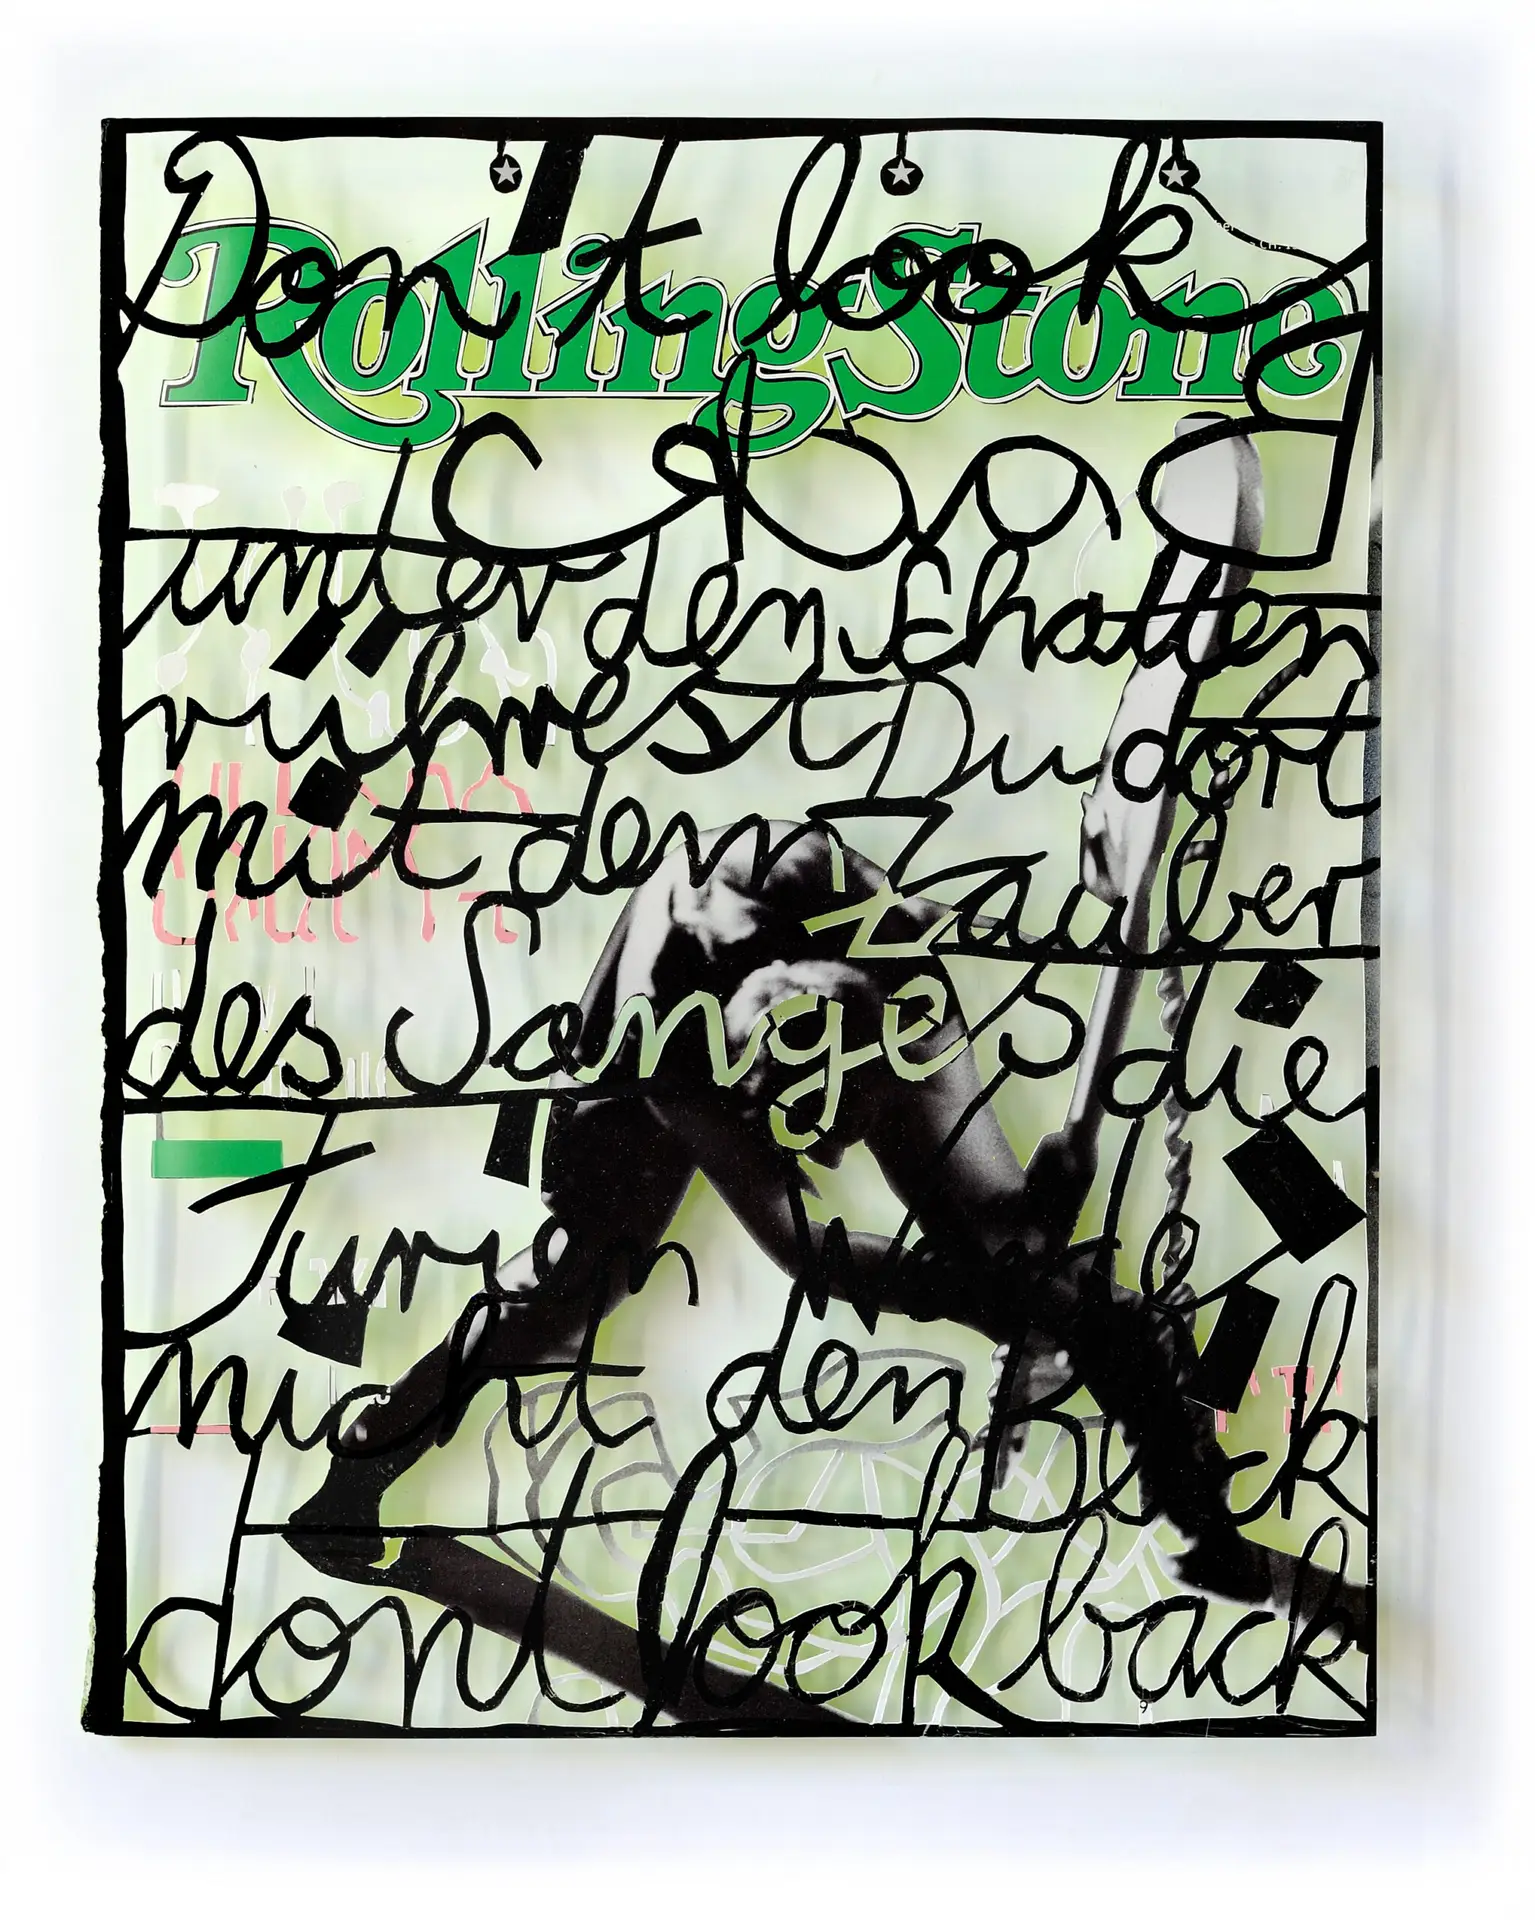 Don't look
RollingStone
unter den Schatten
ruhmest Du dort
mit dem Zauber
des Sanges die
Furien Wende
nicht den Blick
dont look back
9